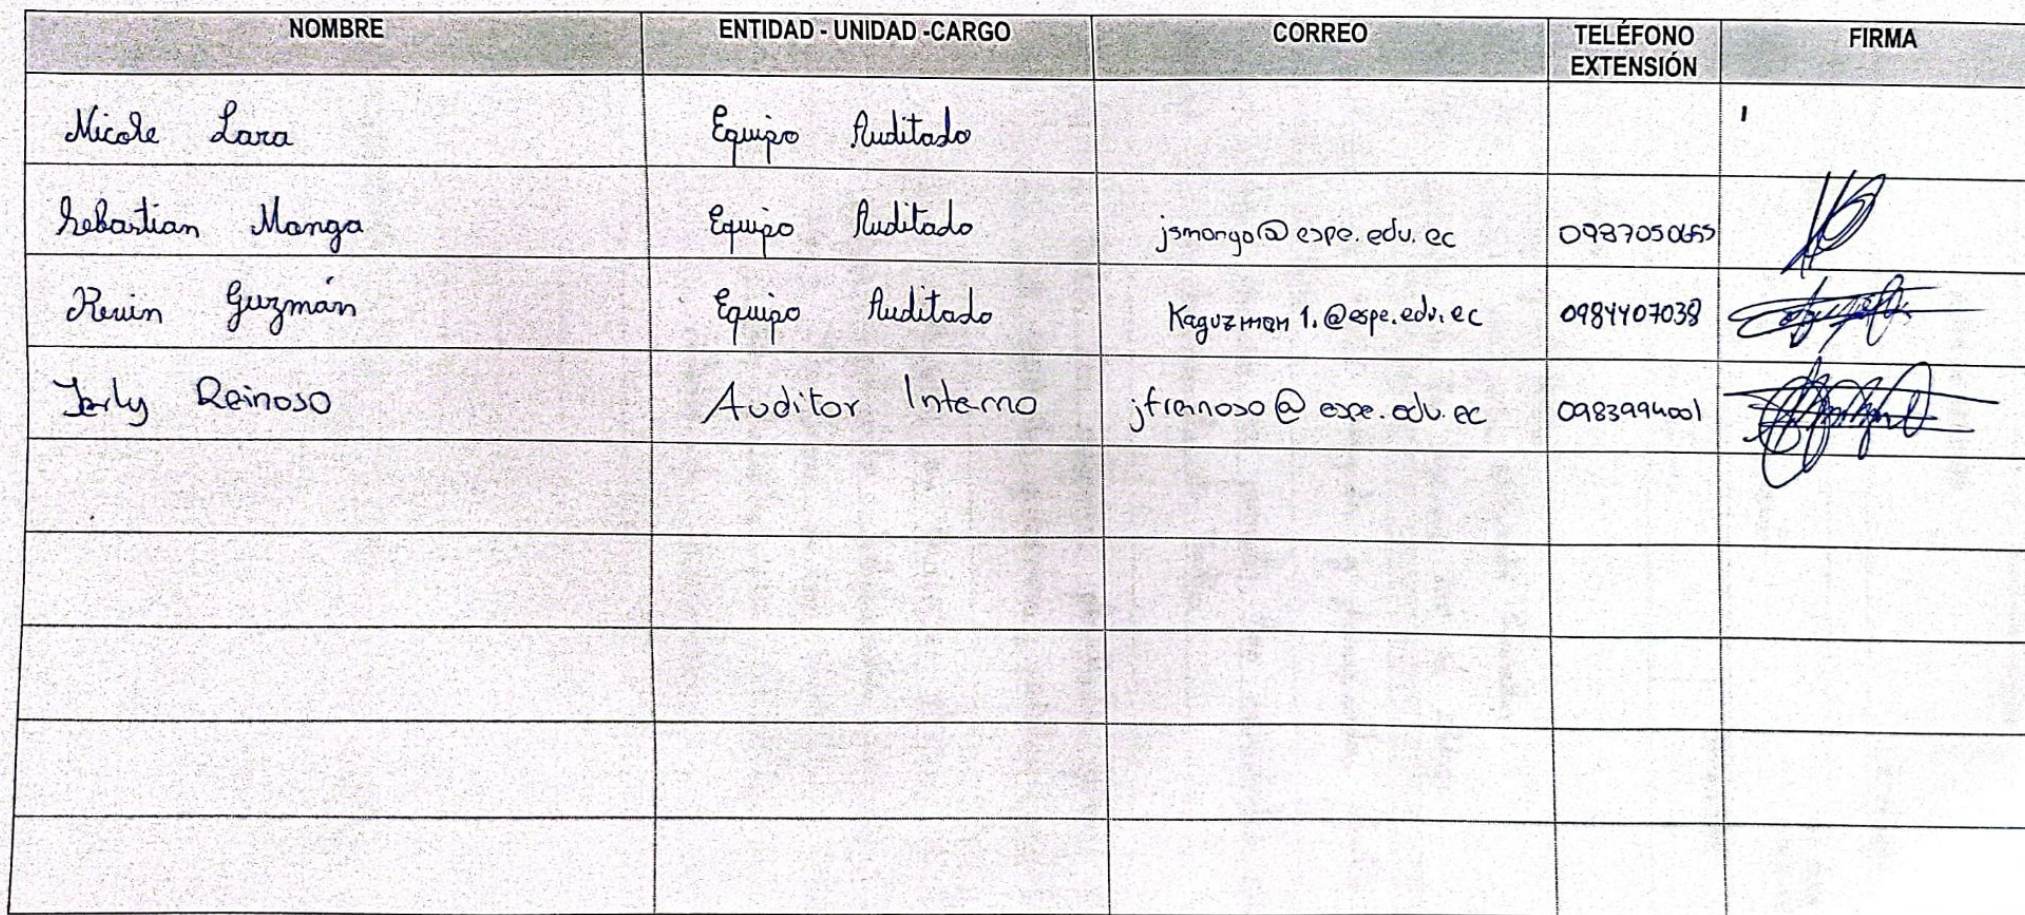 NOMBRE ENTIDAD - UNIDAD -CARGO CORREO TELÉFONO EXTENSIÓN FIRMA
Nicole Lara Equipo Auditado
Sebastian Manga Equipo Auditado jsmonga@espe.edu.ec
Kevin Guzmán Equipo Auditado Kaguzman1.@espe.edu.ec 0984407038
Jerly Reinoso Auditor Interno @espe.edu.ec 0983994001